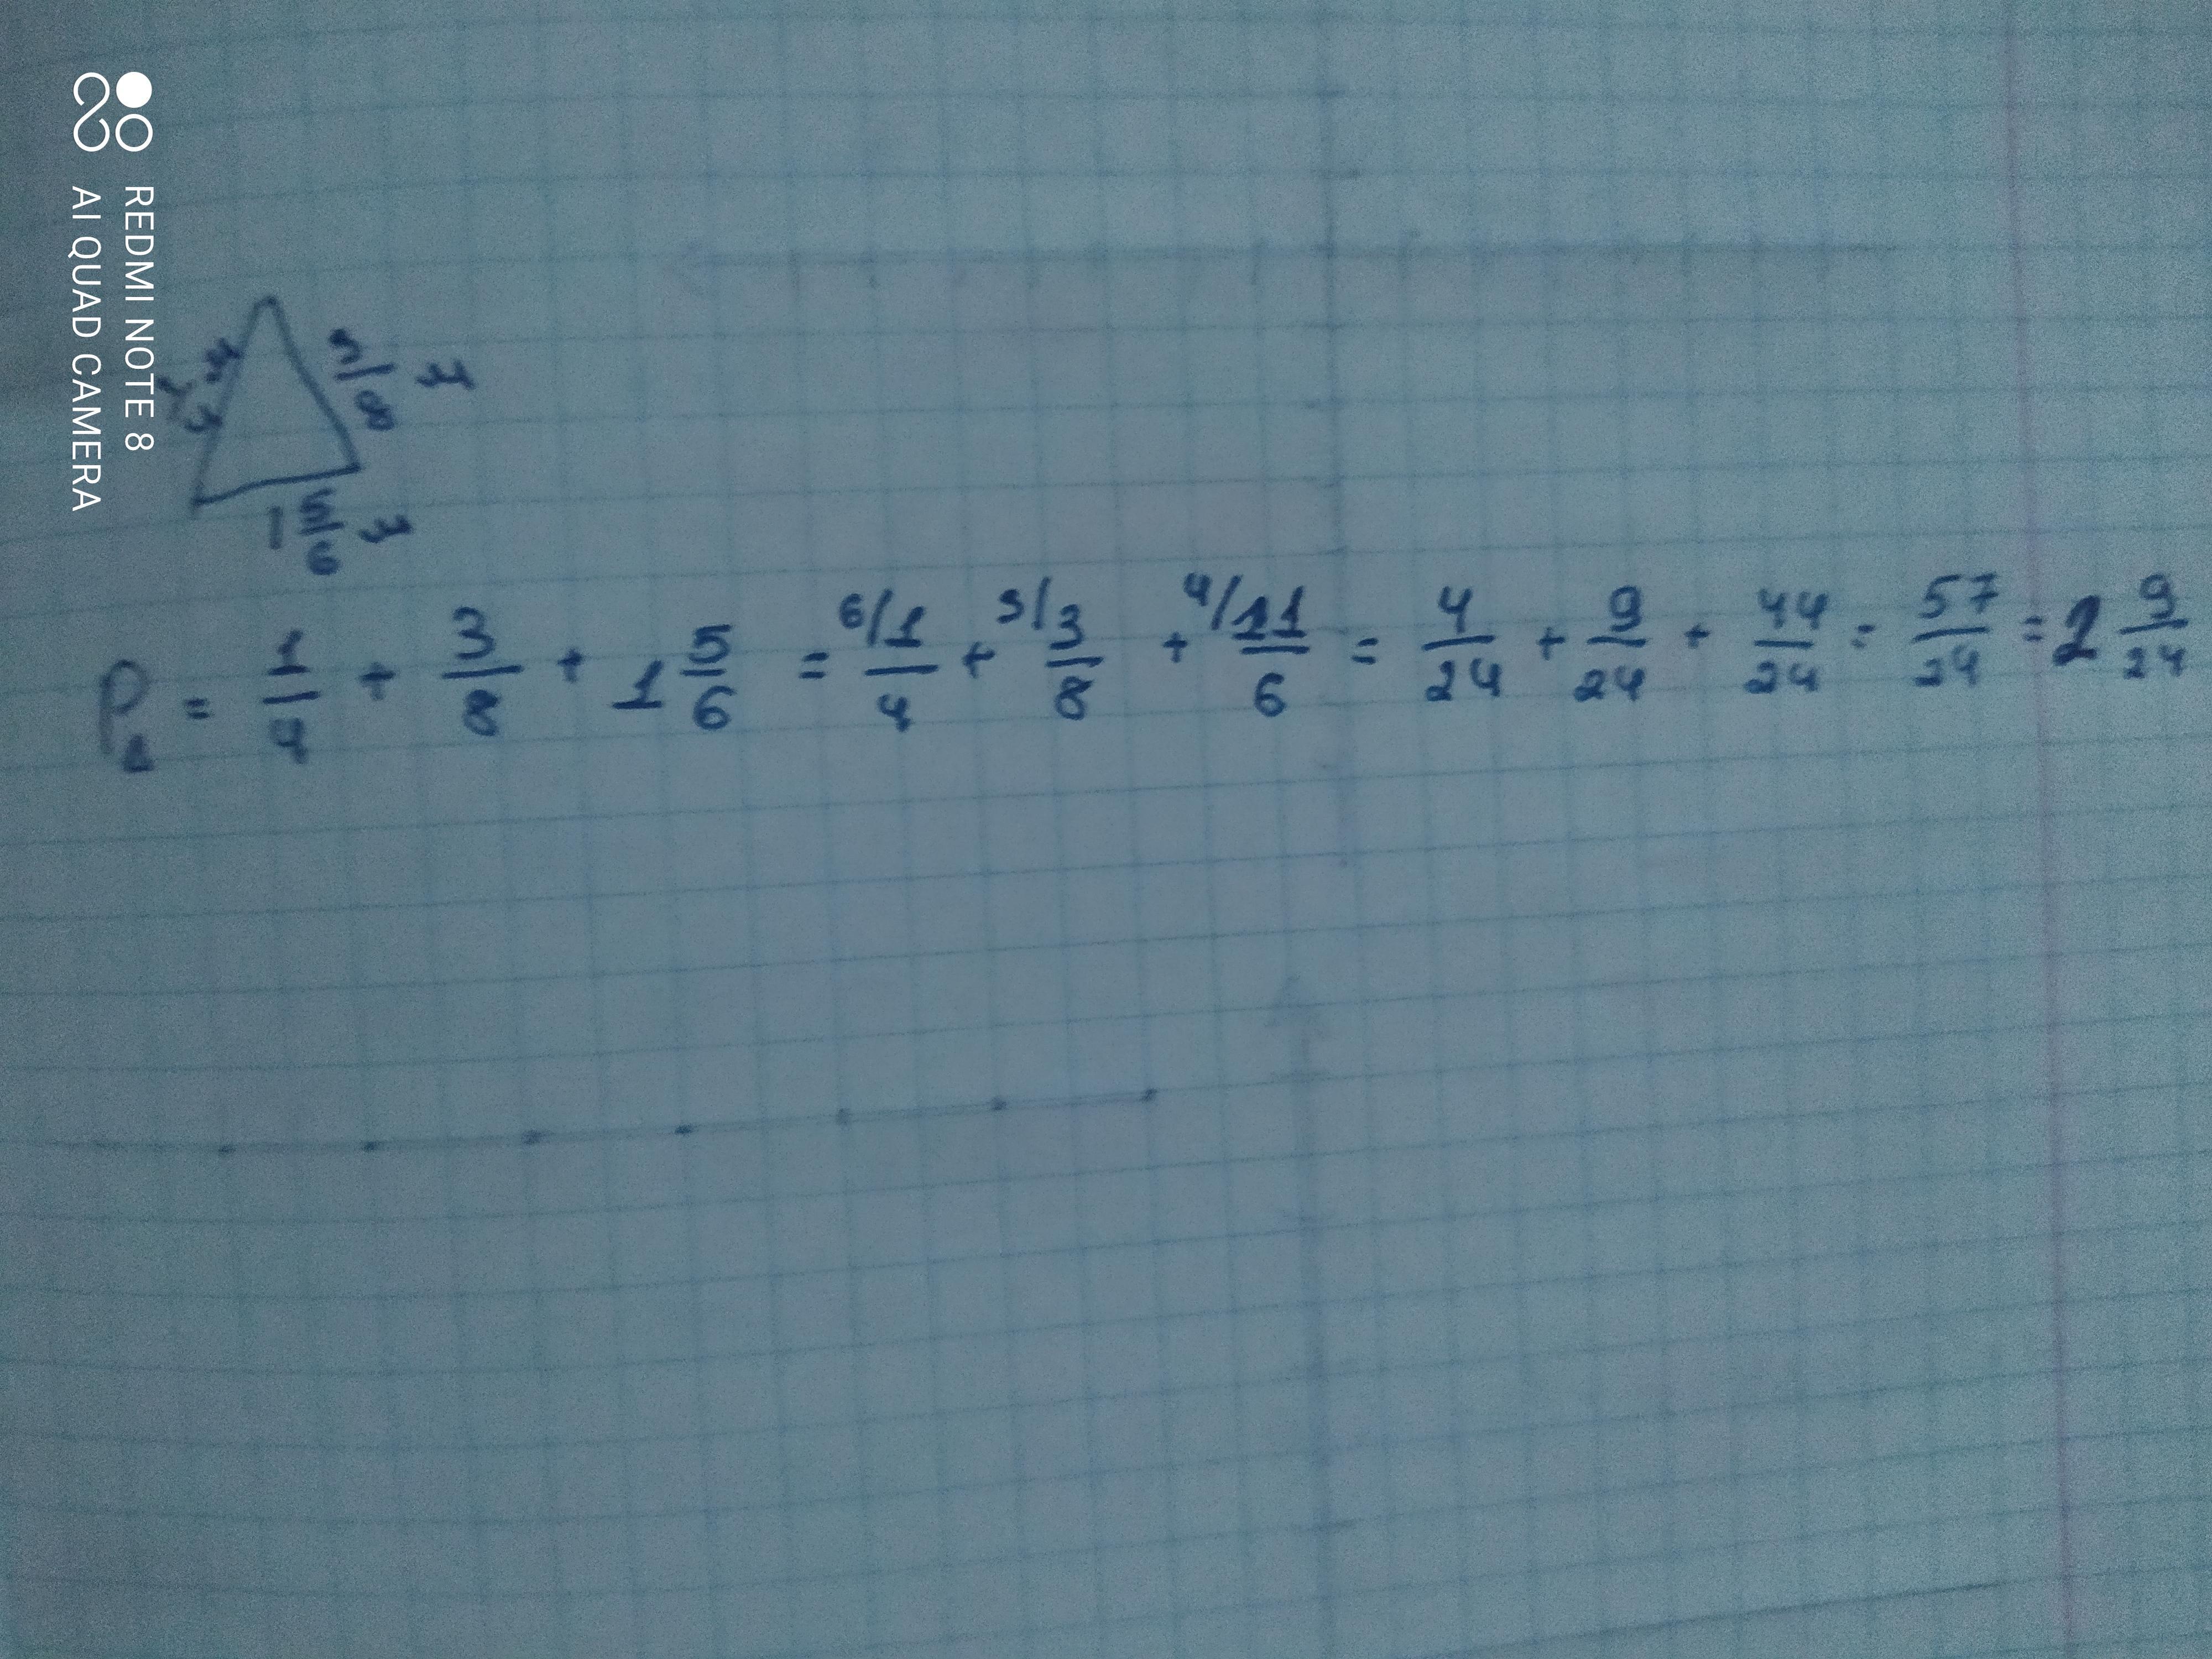 REDMI NOTE 8
AI QUAD CAMERA
3/8 м
1 5/6 м
P△ = 1/4 + 3/8 + 1 5/6 = 6/ 1/4 + 3/ 3/8 + 4/ 11/6 = 4/24 + 9/24 + 44/24 = 57/24 = 2 9/24